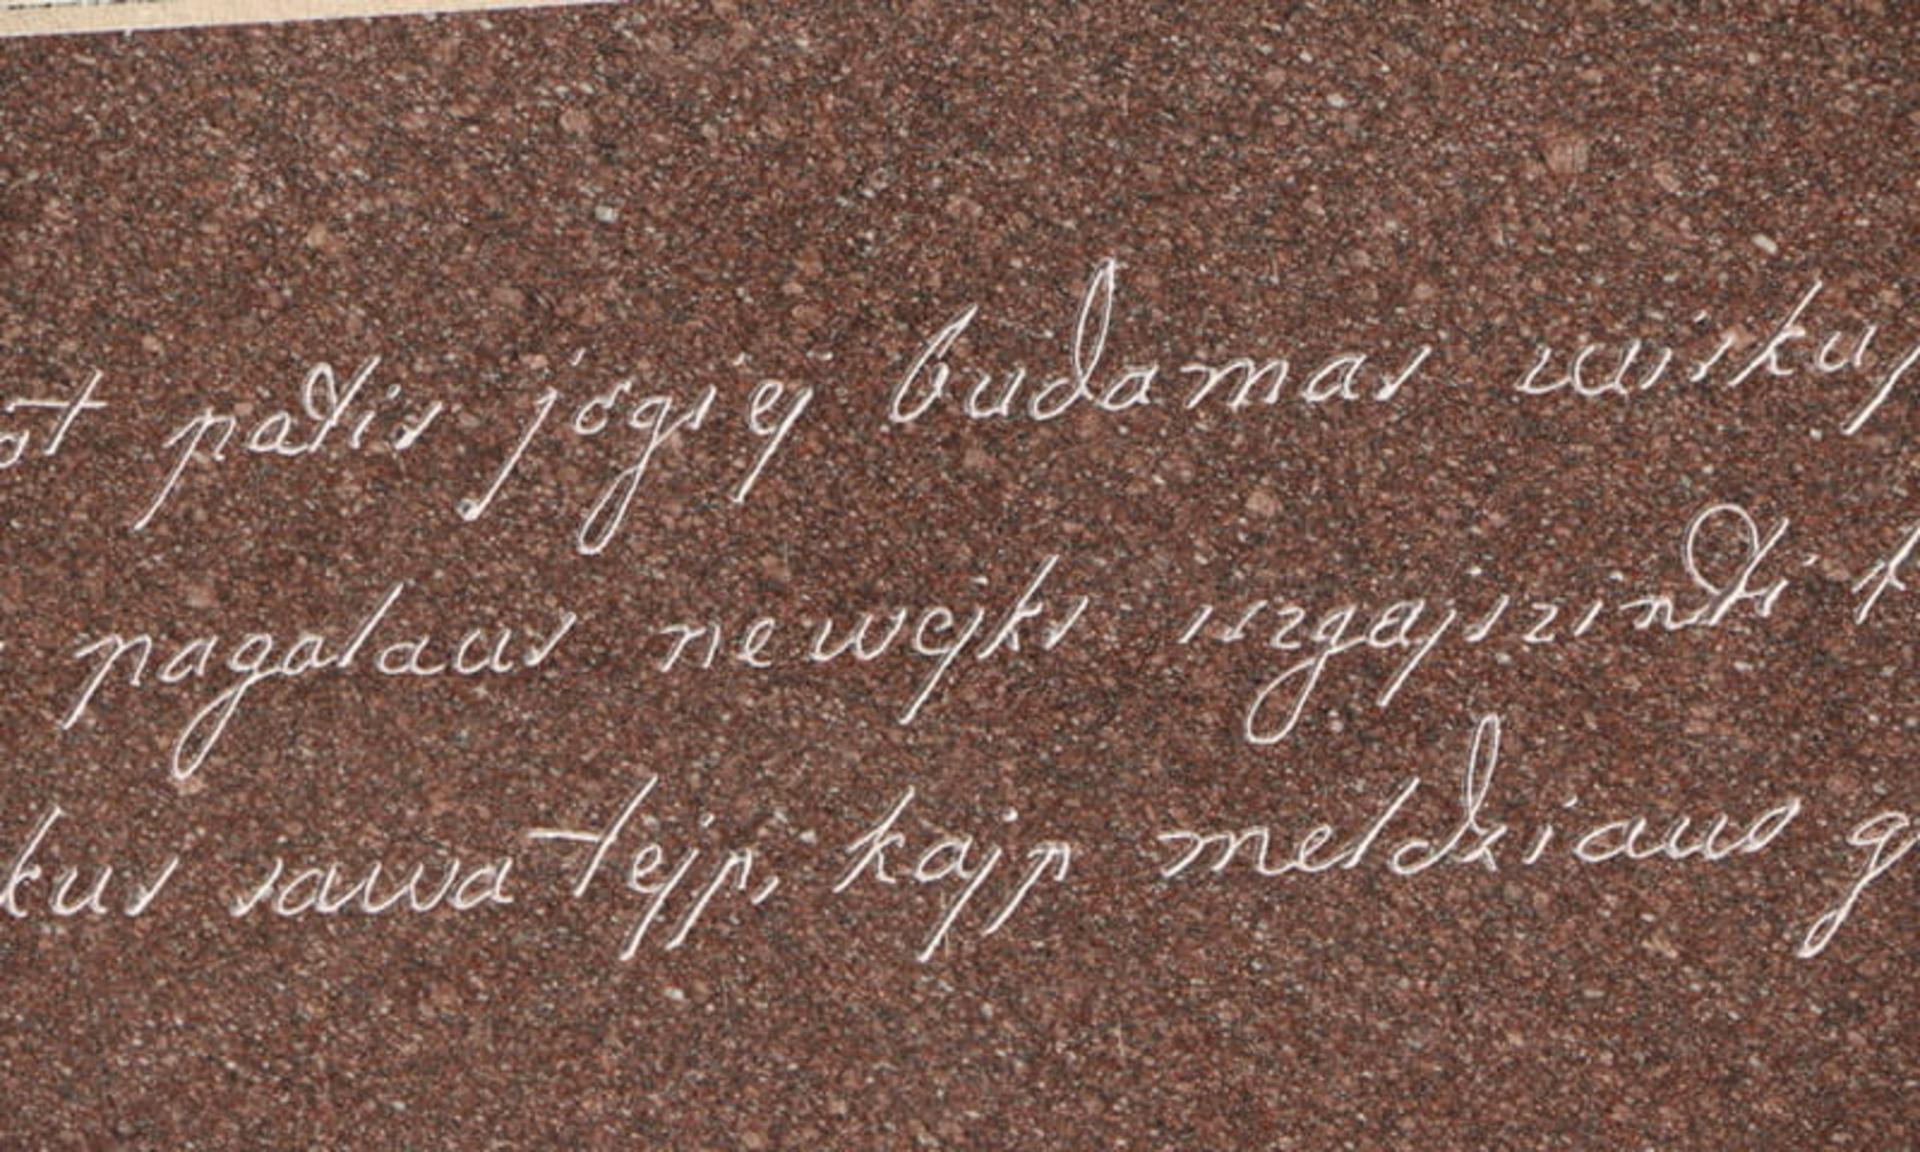 patis jógiej budamas
pagalaus newejks iszgajszinti
kus sawa tejp, kajp meldziaus